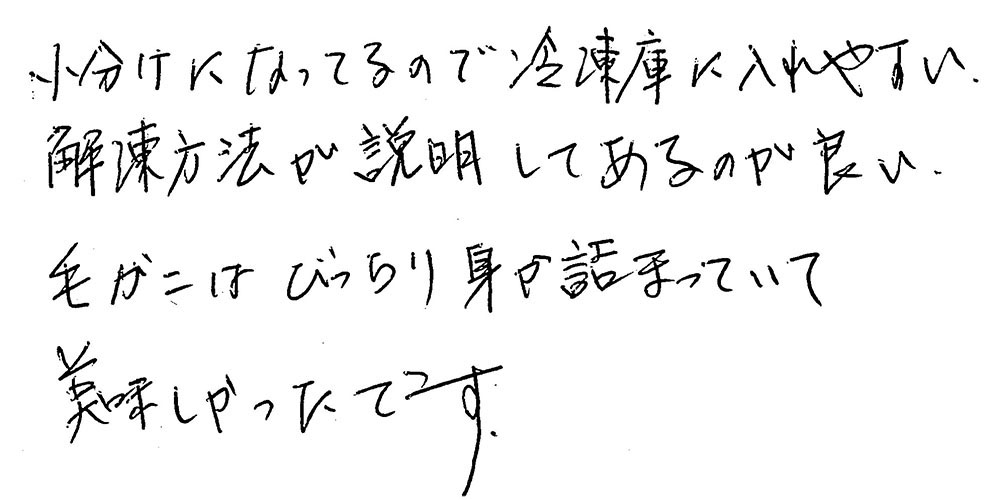 小分けになってるので冷凍庫に入れやすい.
解凍方法が説明してあるのが良い.
毛がにはびっちり身が詰まっていて
美味しかったです.